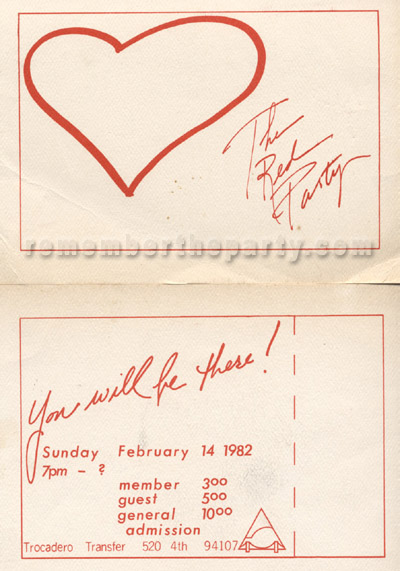 The
Red
Party
remembertheparty.com
You will be there!
Sunday February 14 1982
7pm - ?
member 300
guest 500
general 1000
admission
Trocadero Transfer 520 4th 94107